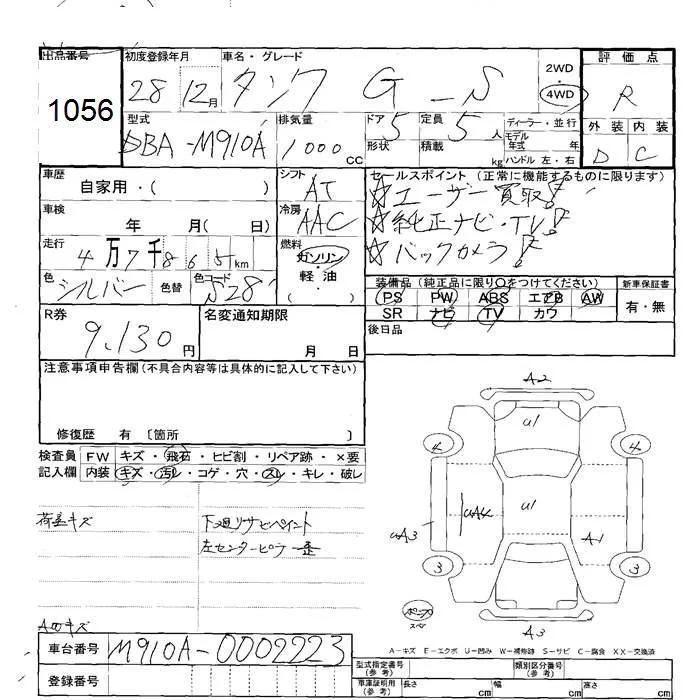 出品番号
1056
初度登録年月
28 12月
車名・グレード
タンク G-S
2WD
4WD
評価点
R
外装 内装
D C
型式
DBA-M910A
排気量
1000cc
ドア 5
形状
定員 5人
積載 kg
ディーラー・並行
モデル年式 年
ハンドル 左・右
車歴
自家用・( )
シフト
AT
セールスポイント (正常に機能するものに限ります)
☆ユーザー買取!
☆純正ナビ・TV!
☆バックカメラ!
車検
年 月( 日)
冷房
AAC
走行
4万7千865km
燃料
ガソリン
軽油
( )
色
シルバー
色替
色コード
S28
装備品 (純正品に限り○をつけてください)
PS PW ABS エアB AW
SR ナビ TV カワ
新車保証書
有・無
後日品
R券
9,130円
名変通知期限
月 日
注意事項申告欄(不具合内容等は具体的に記入して下さい)
修復歴 有 〔箇所 〕
検査員記入欄
FW キズ・飛石・ヒビ割・リペア跡・×要
内装 キズ・汚レ・コゲ・穴・スレ・キレ・破レ
荷室キズ
下廻りサビペイント
左センターピラー歪
AのキズA2
U1
4 4
UA3
UA4
U1
A1
3 3
A3
スペア
A-キズ E-エクボ U-凹み W-補修跡 S-サビ C-腐食 XX-交換済
車台番号
M910A-0002223
登録番号
型式指定番号(参考)
類別区分番号(参考)
車庫証明用(参考)
長さ cm
幅 cm
高さ cm